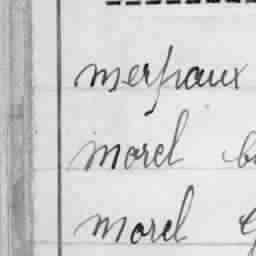 merpaux
morel
morel